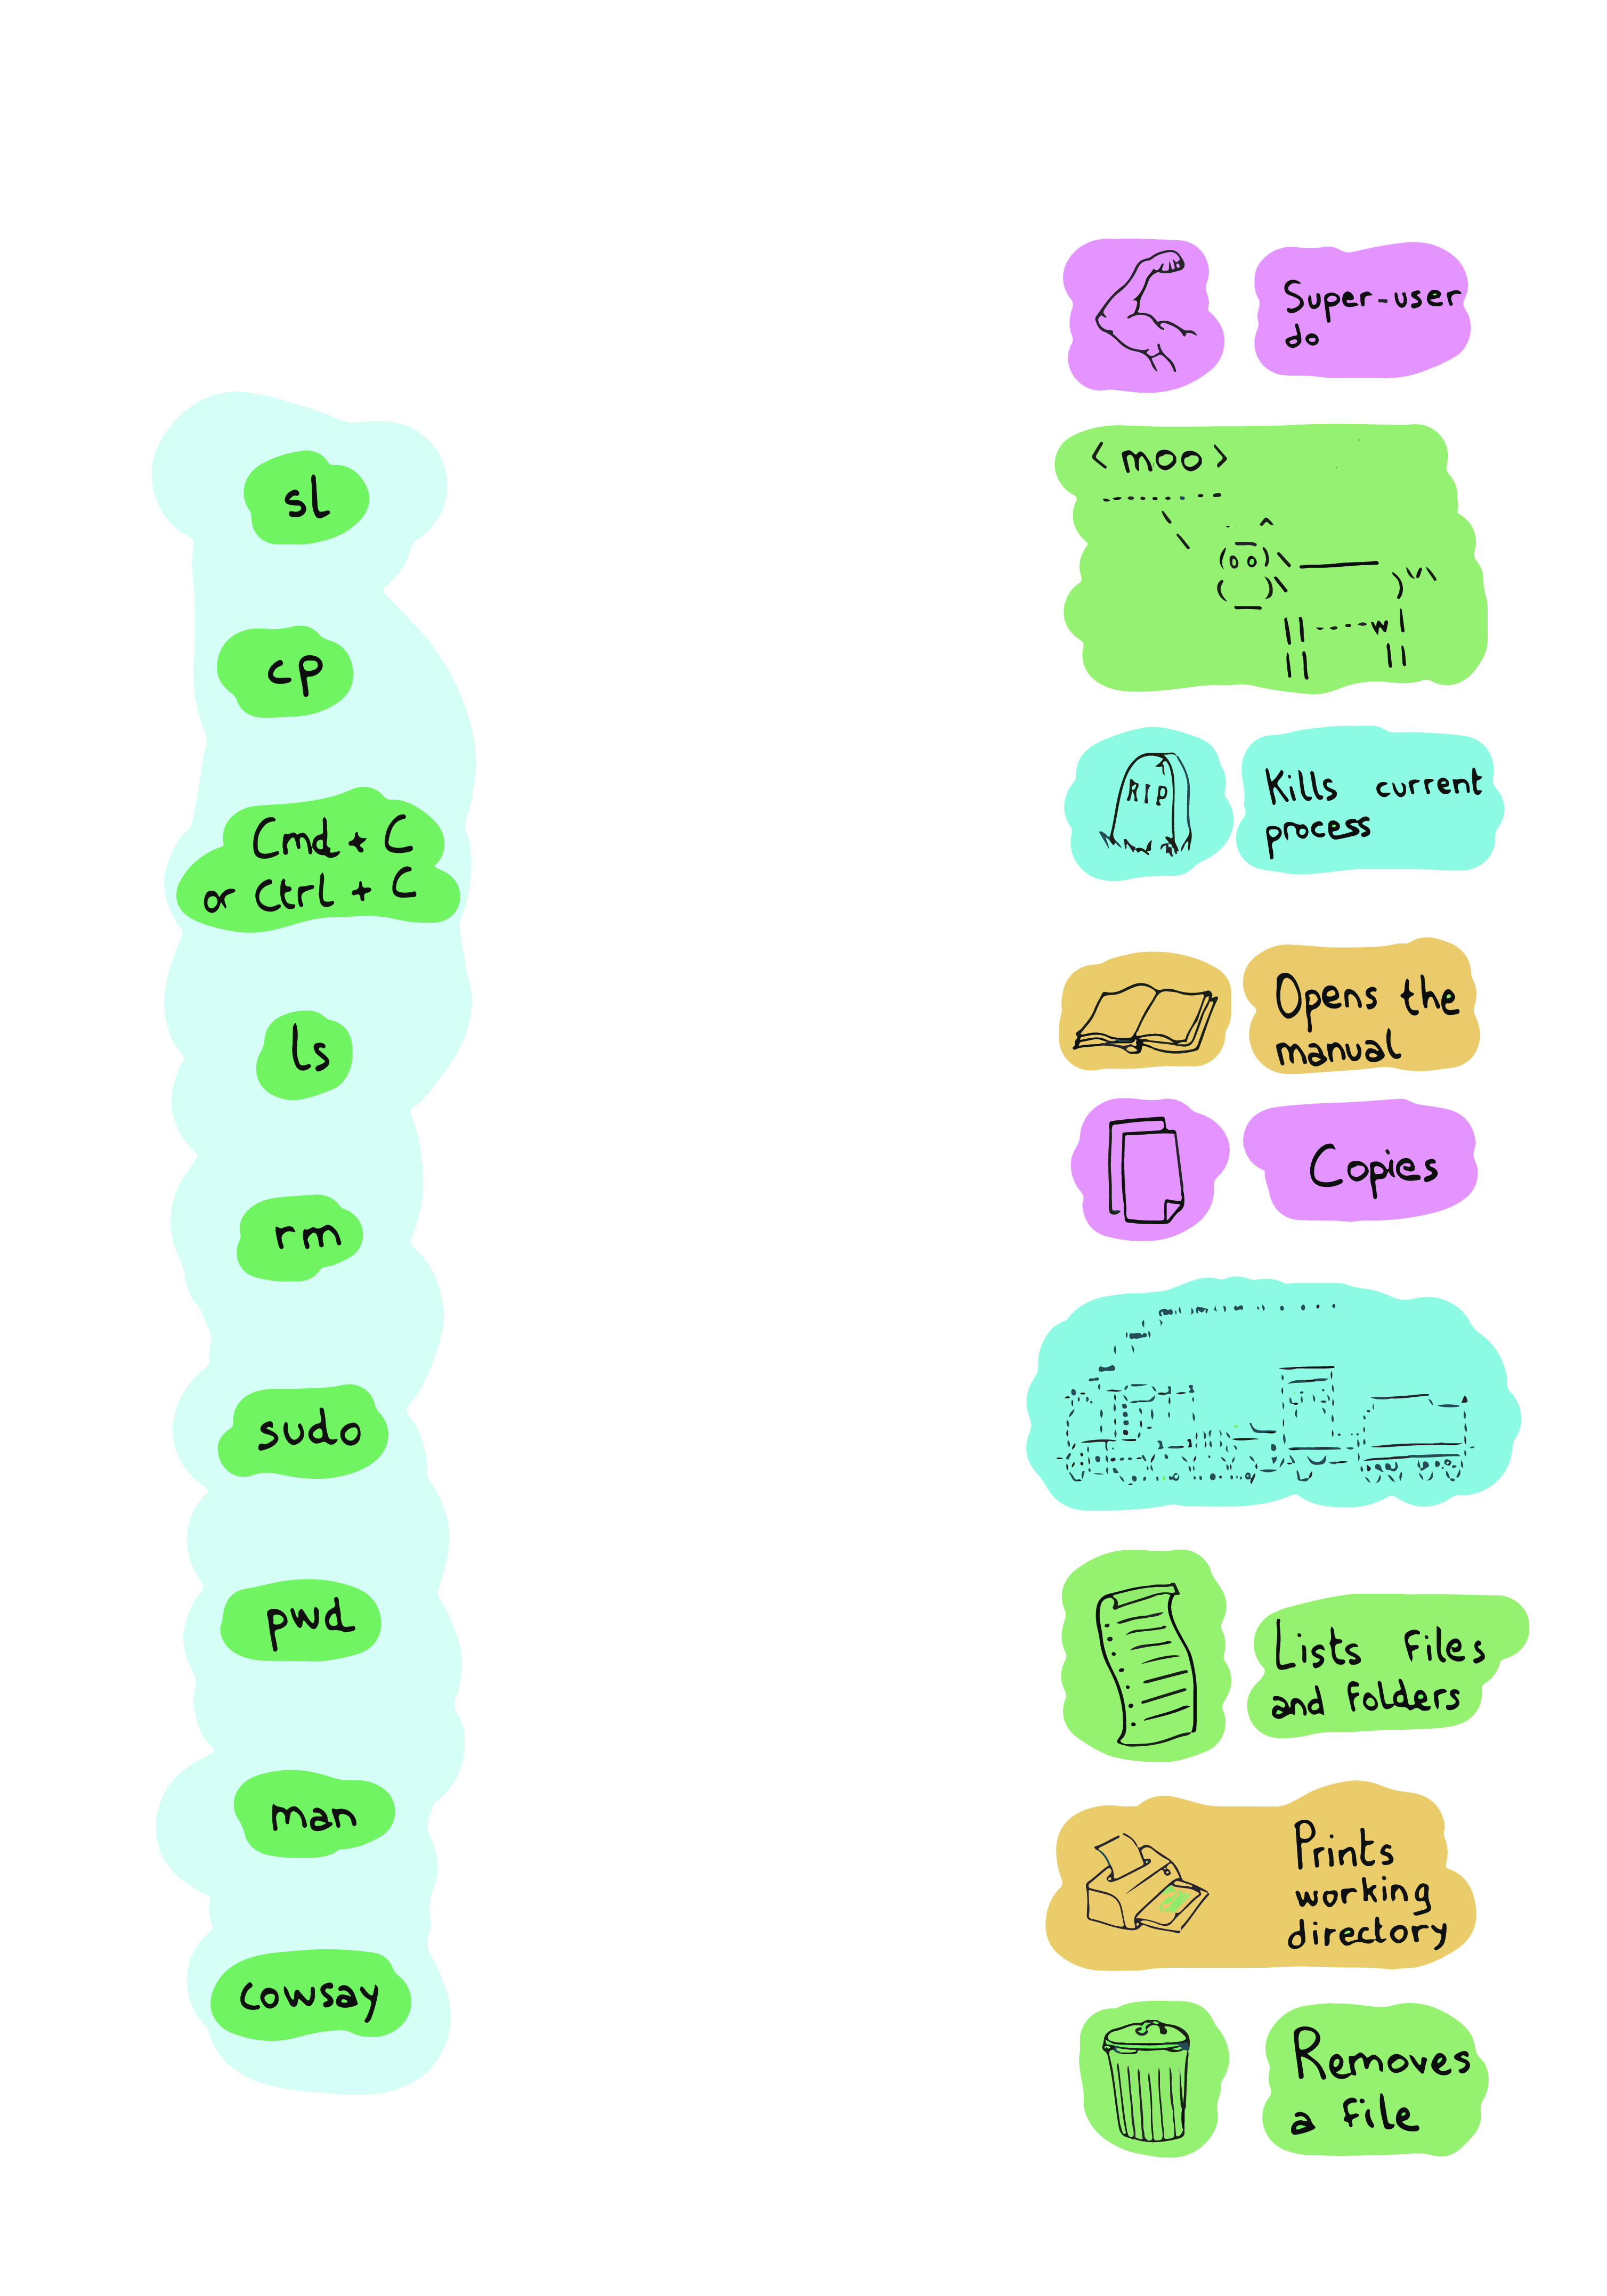 sl
cp
Cmd + C
or Ctrl + C
ls
rm
sudo
pwd
man
cowsay
Super-user
do
< moo >
Kills current
process
RIP
Opens the
manual
Copies
Lists files
and folders
Prints
working
directory
Removes
a file